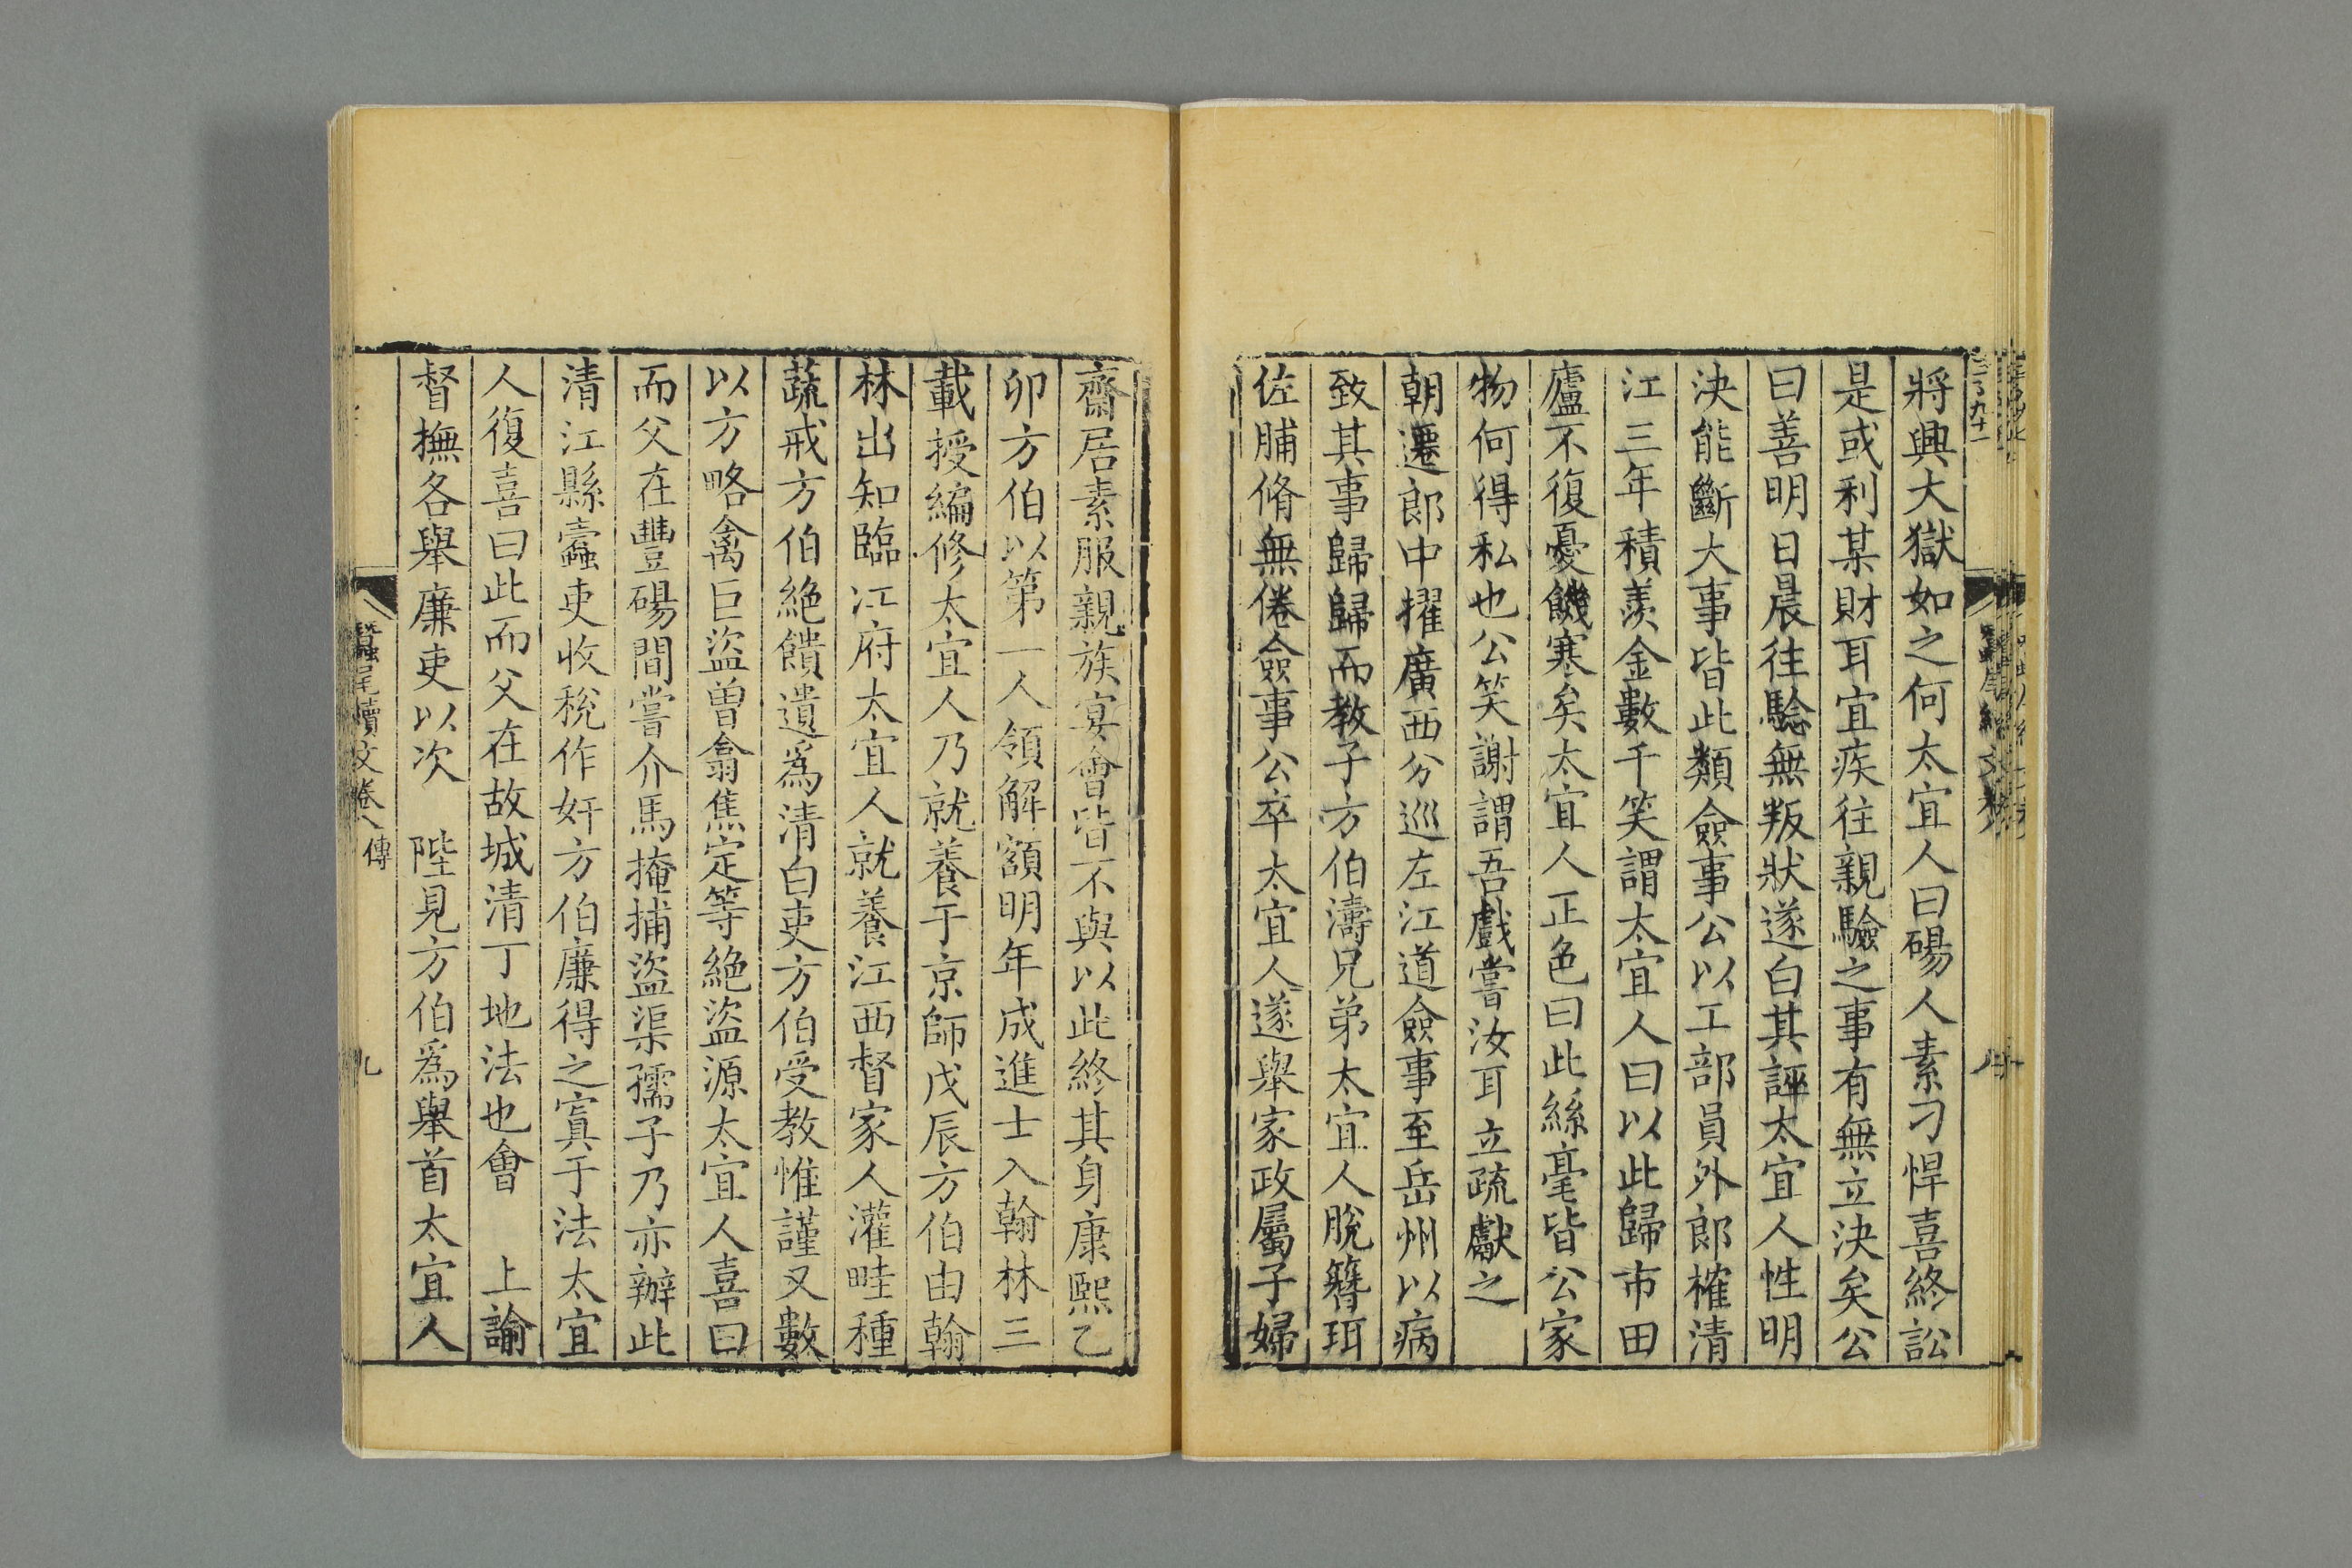 將興大獄如之何太宜人曰碭人素刁悍喜終訟
是或利某財耳宜疾往親驗之事有無立決矣公
曰善明日晨往驗無叛狀遂白其誣太宜人性明
決能斷大事皆此類僉事公以工部員外郎榷清
江三年積羨金數千笑謂太宜人曰以此歸市田
廬不復憂饑寒矣太宜人正色曰此絲毫皆公家
物何得私也公笑謝謂吾戲嘗汝耳立疏獻之
朝遷郎中擢廣西分巡左江道僉事至岳州以病
致其事歸歸而教子方伯濤兄弟太宜人脫簪珥
佐脯脩無倦僉事公卒太宜人遂舉家政屬子婦
齋居素服親族宴會皆不與以此終其身康熙乙
卯方伯以第一人領解額明年成進士入翰林三
載授編修太宜人乃就養于京師戊辰方伯由翰
林出知臨江府太宜人就養江西督家人灌畦種
蔬戒方伯絕饋遺爲清白吏方伯受教惟謹又數
以方略禽巨盜曾翕焦定等絕盜源太宜人喜曰
而父在豐碭間嘗介馬掩捕盜渠孺子乃亦辦此
清江縣蠹吏收稅作奸方伯廉得之寘于法太宜
人復喜曰此而父在故城清丁地法也會　上諭
督撫各舉廉吏以次　陛見方伯爲舉首太宜人
蠶尾續文卷八　傳　九